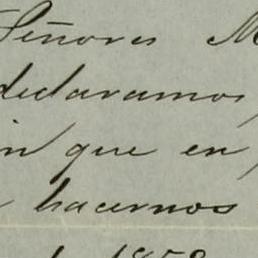 Señores M
declaramos,
in que en
hacernos
1858